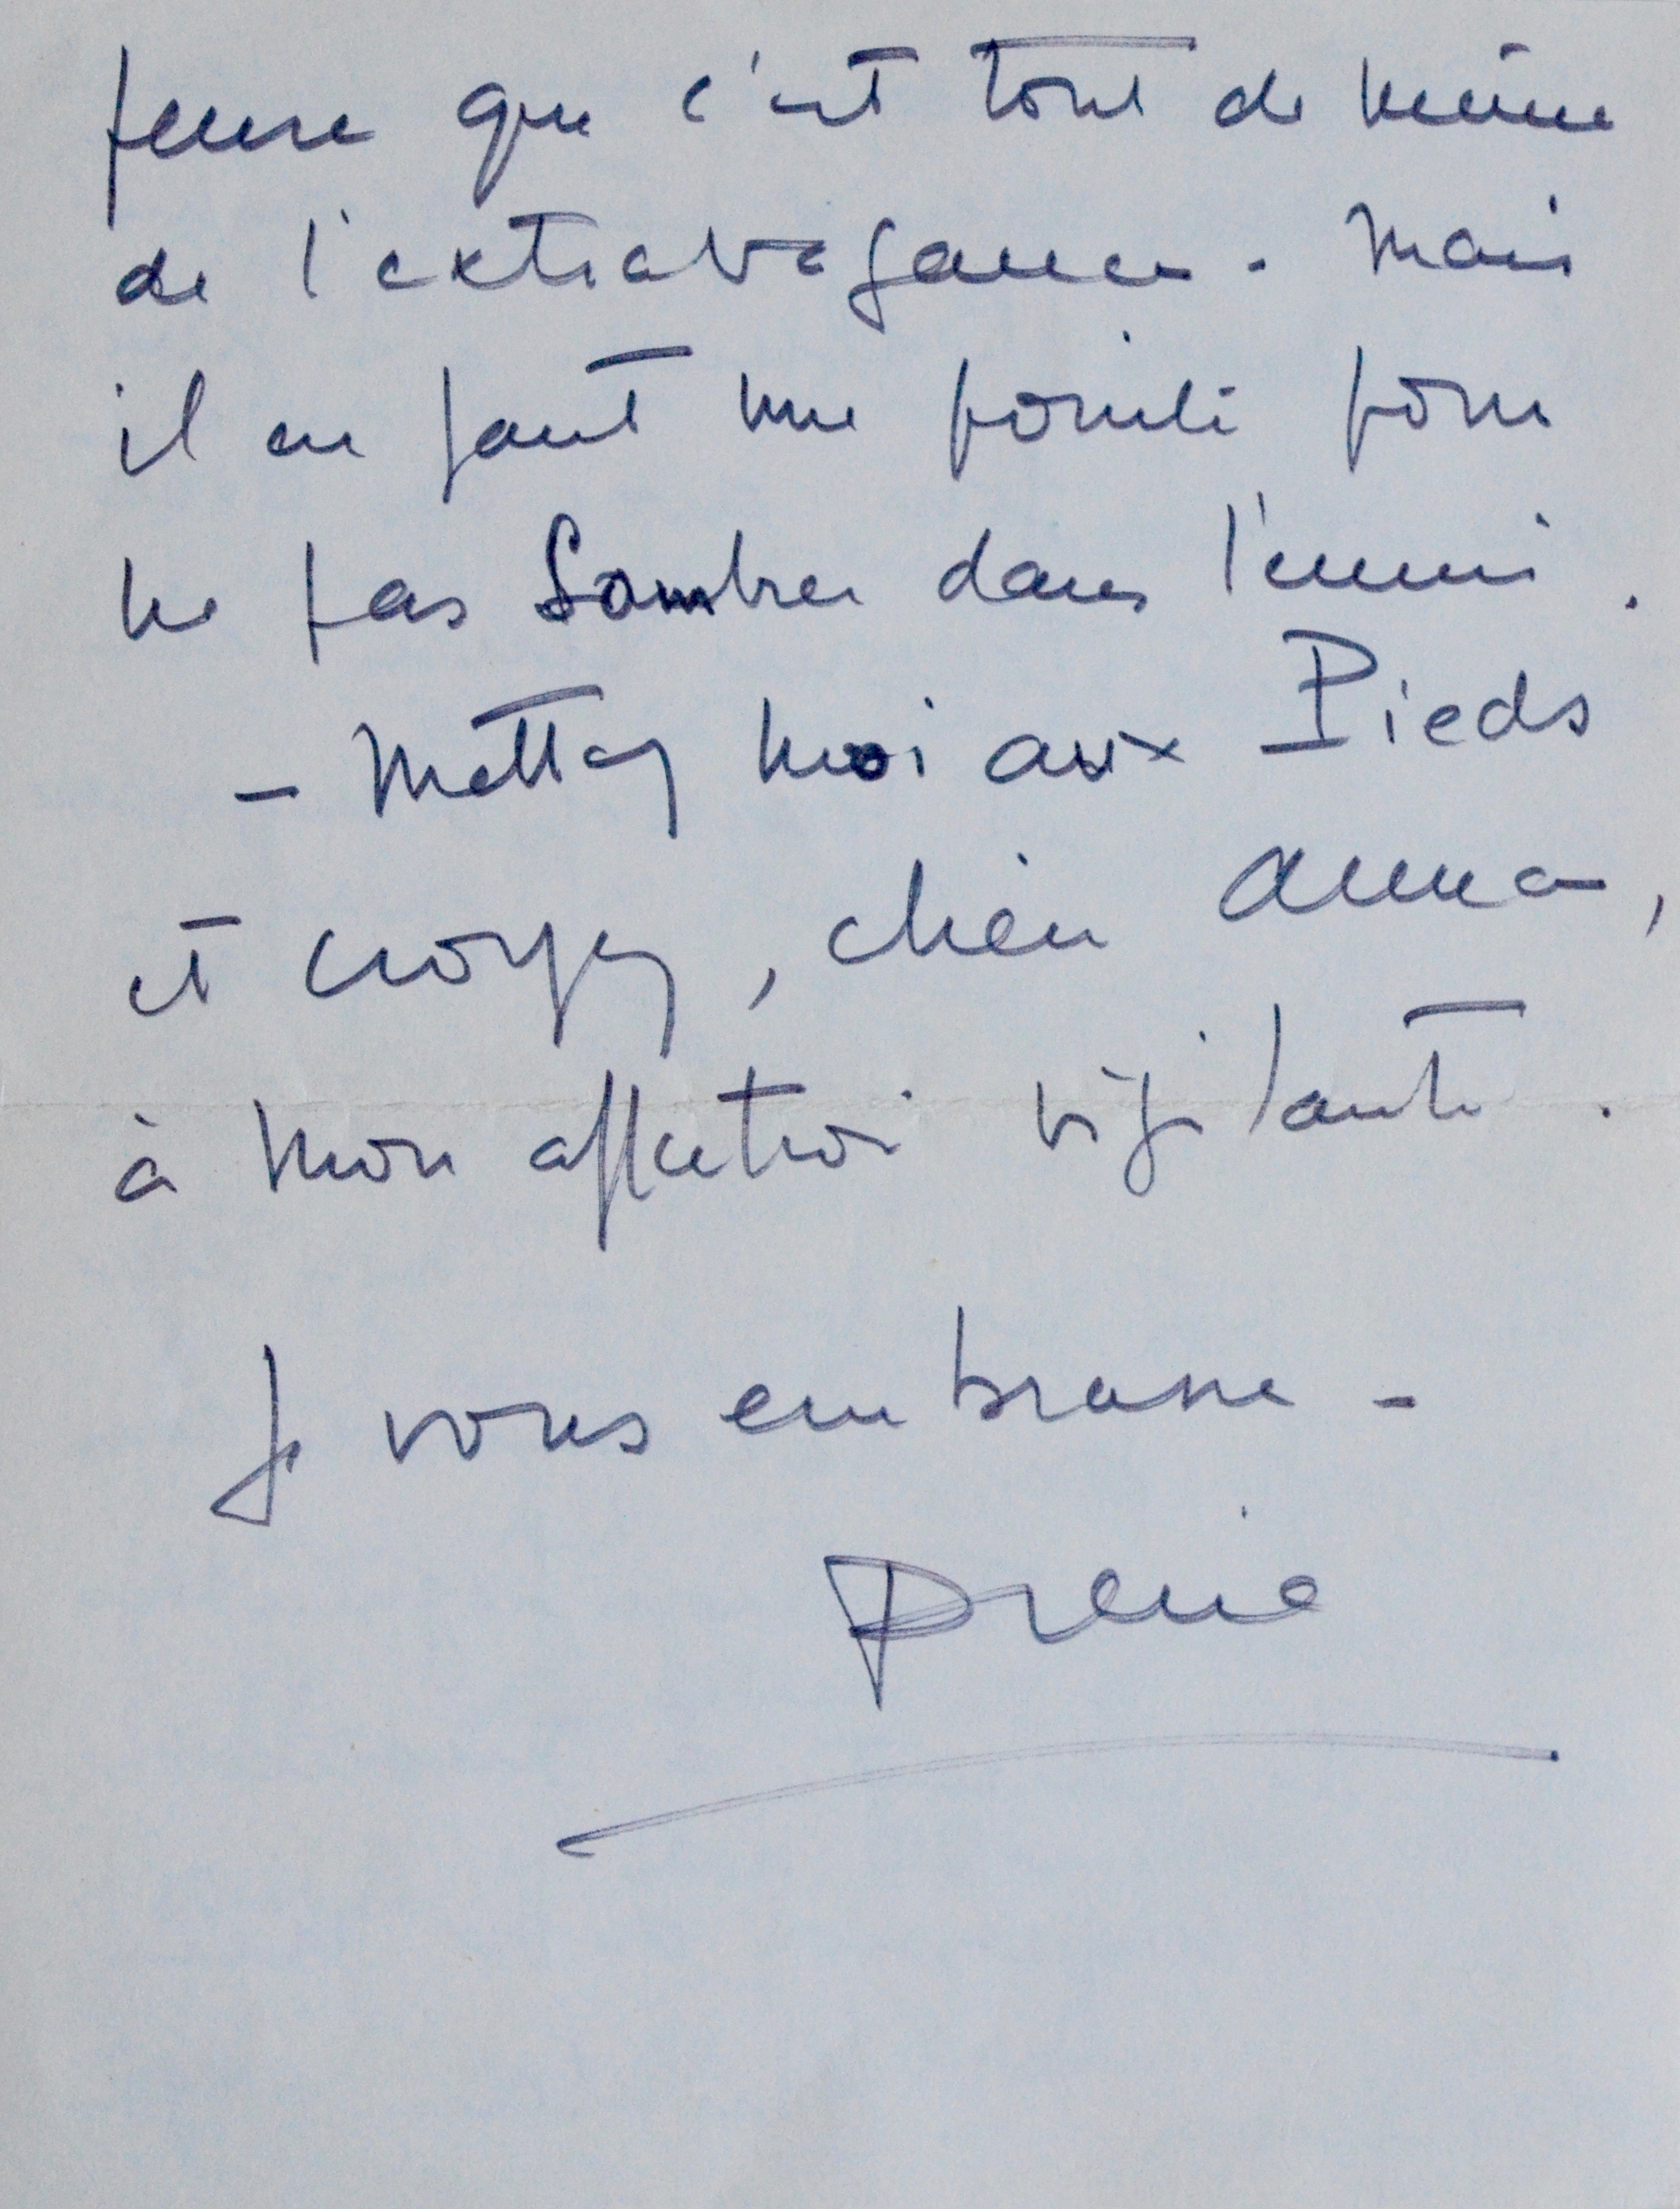 pense que c'est tout de même
de l'extravagance. Mais
il en faut une pointe pour
ne pas Sombrer dans l'ennui.
- Mettez moi aux Pieds
et croyez, chère Anna,
à mon affection vigilante.
Je vous embrasse -